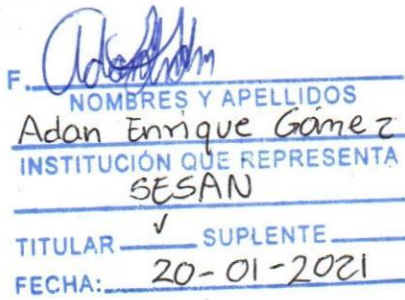 F.
NOMBRES Y APELLIDOS
Adan Enrique Gámez
INSTITUCIÓN QUE REPRESENTA
SESAN
TITULAR ✓ SUPLENTE
FECHA: 20-01-2021